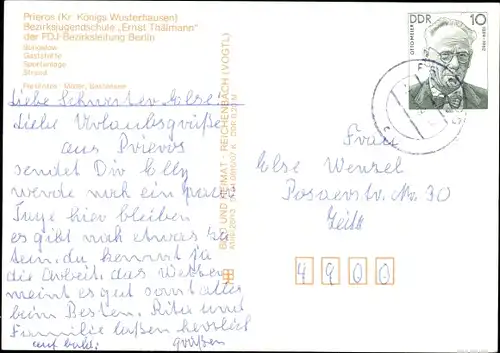 Prieros (Kr. Königs Wusterhausen)
Bezirksjugendschule „Ernst Thälmann"
der FDJ-Bezirksleitung Berlin
Bungalow
Gaststätte
Sportanlage
Strand
Liebe Schwester Else!
Liebe Urlaubsgrüße
aus Prieros
sendet Dir Elly
werde noch ein paar
Tage hier bleiben
es gibt noch etwas zu
tein. du kennst ja
die Arbeit. das Wetter
meint es gut sonst alles
beim Besten. Rita und
Familie laßen herzlich
auf bald. grüßen
BILD UND HEIMAT · REICHENBACH (VOGTL)
DDR 10
OTTO MEIER
Frau
Else Wenzel
Posaerstr. Nr. 30
Zeitz
4900